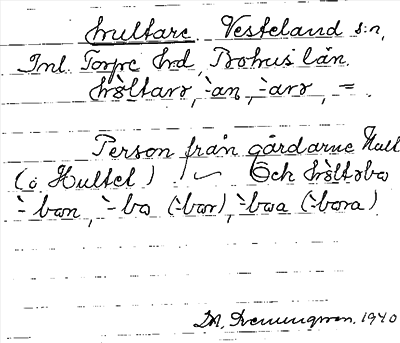 hultare. Vesteland s:n,
Inl. Torpe hrd, Bohus län.
hòltarə, -̀an, -̀arə, =.
Person från gårdarne Hult
(o Hultet) Och hòltəbə
-̀bon, -̀bə (-bor), -̀boa (-bora)
1940